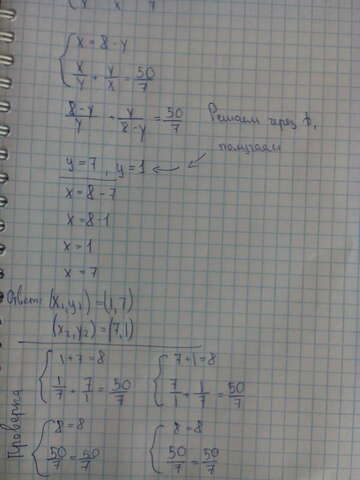 x = 8 - y
x/y + y/x = 50/7
8-y/y + y/8-y = 50/7
Решаем через D,
получаем
y = 7, y = 1
x = 8 - 7
x = 8 - 1
x = 1
x = 7
Ответ: (x₁, y₁) = (1, 7)
(x₂, y₂) = (7, 1)
Проверка
1 + 7 = 8
1/7 + 7/1 = 50/7
7 + 1 = 8
7/1 + 1/7 = 50/7
8 = 8
50/7 = 50/7
8 = 8
50/7 = 50/7